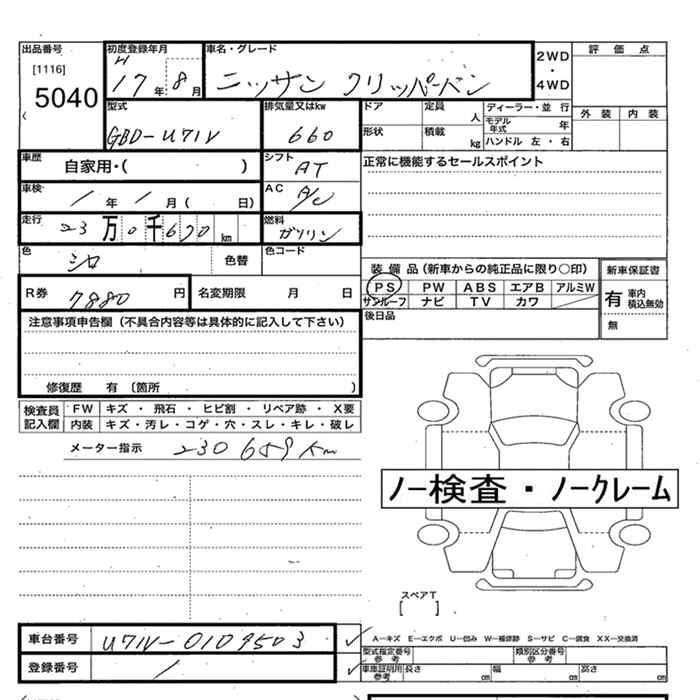 出品番号 初度登録年月 車名・グレード 2WD・4WD 評価点
[1116] H
5040 17年8月 ニッサン クリッパーバン
型式 排気量又はkw ドア 定員 人 ディーラー・並 行 外装 内装
GBD-U71V 660 形状 積載 kg モデル年式 年
ハンドル 左・右
車歴 自家用・( ) シフト AT 正常に機能するセールスポイント
車検 / 年 / 月( 日) AC A/C
走行 23万0千670km 燃料 ガソリン
色 シロ 色替 色コード
装備品(新車からの純正品に限り○印) 新車保証書
R券 7880円 名変期限 月 日 PS PW ABS エアB アルミW 有 車内積込無効
サンルーフ ナビ TV カワ
注意事項申告欄(不具合内容等は具体的に記入して下さい) 後日品 無
修復歴 有〔箇所 )
検査員記入欄 FW キズ・飛石・ヒビ割・リペア跡・X要
内装 キズ・汚レ・コゲ・穴・スレ・キレ・破レ
メーター指示 230659km
ノー検査・ノークレーム
スペアT
[ ]
車台番号 U71V-0109503 A―キズ E―エクボ U―凹み W―補修跡 S―サビ C―腐食 XX―交換済
型式指定番号 参考 類別区分番号 参考
登録番号 / 車庫証明用参考 長さ cm 幅 cm 高さ cm